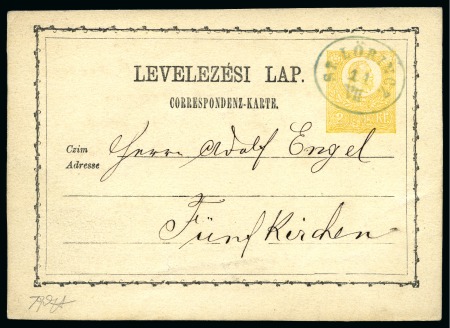 SZ. LÖRINCZ
11
VII
LEVELEZÉSI LAP.
CORRESPONDENZ-KARTE.
2 KR.
Czim
Adresse
Herrn Adolf Engel
Fünfkirchen